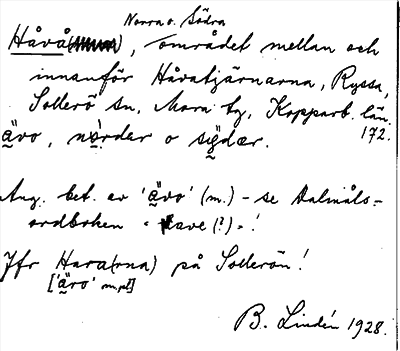 Norra o. Södra
Håvå, området mellan och
innanför Håvatjärnarna, Ryssa,
Sollerö sn, Mora tg, Kopparb. län.
172.
ävo, nọrdær o sigdær.
Ang. bet. av 'ävo' (m.) - se Dalmåls-
ordboken - have (?) - !
Jfr Hava(rna) på Sollerön!
['ävo' m.pl]
B. Lindén 1928.